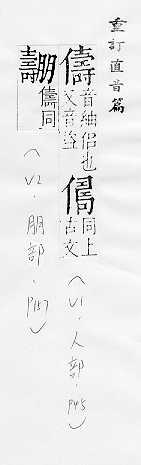 重訂直音篇
儔 音紬侶也 又音
同上 古文
(V1.人部.P45)
儔同
(V2.朋部.P157)